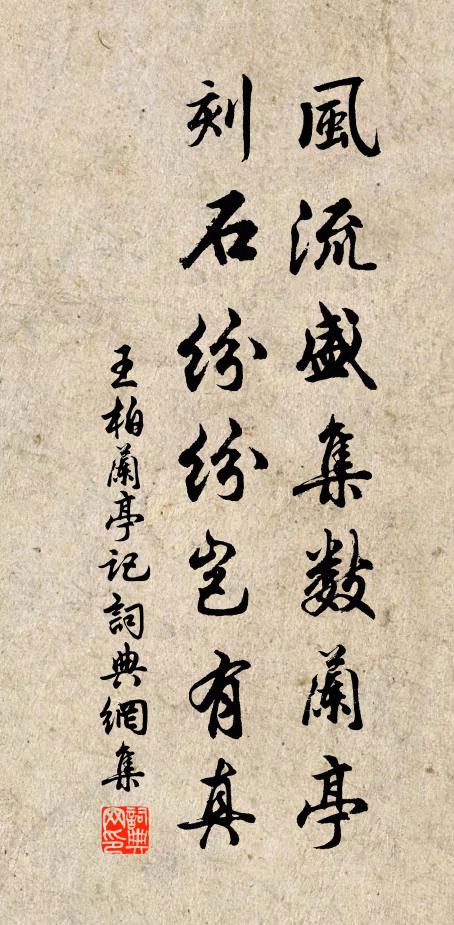 風流盛集數蘭亭
刻石紛紛豈有真
王柏蘭亭記詞典網集
詞典網印